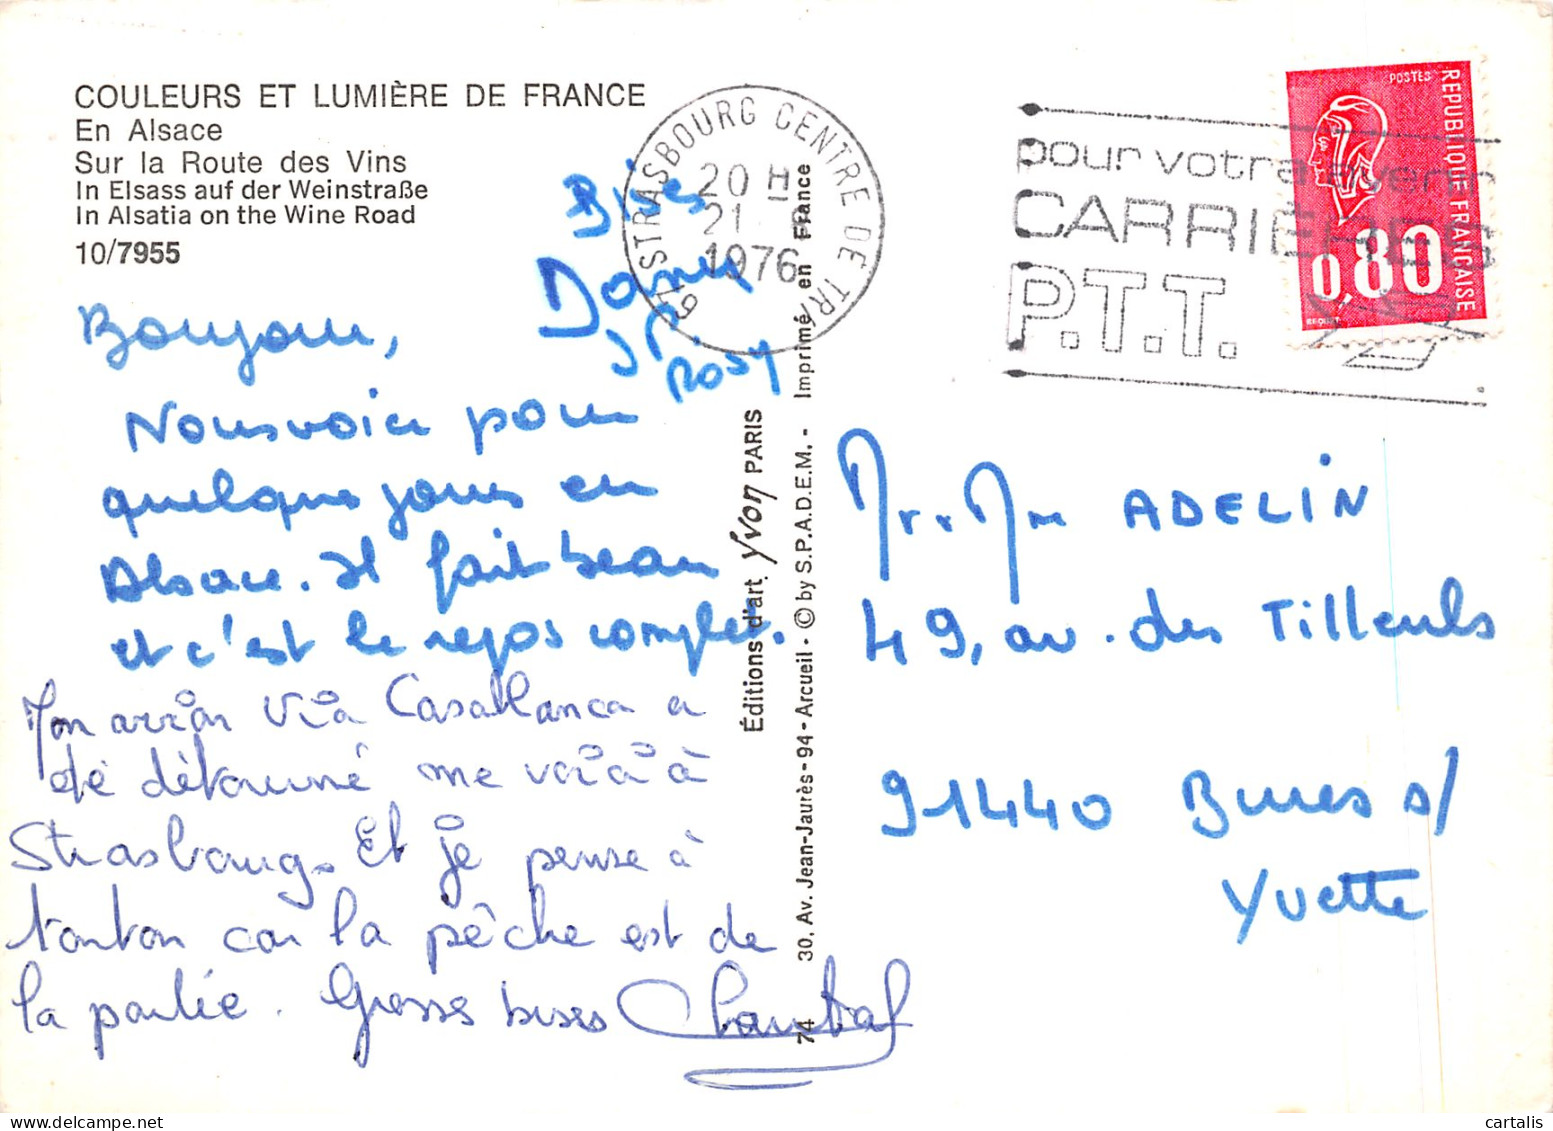 COULEURS ET LUMIÈRE DE FRANCE
En Alsace
Sur la Route des Vins
In Elsass auf der Weinstraße
In Alsatia on the Wine Road
10/7955
STRASBOURG CENTRE DE TRI
20 H
21
1976
pour votre avenir
CARRIÈRES
P.T.T.
POSTES
REPUBLIQUE FRANÇAISE
0,80
Bises
JP
Rosy
Bonjour,
Nous voici pour
quelques jours en
Alsace. Il fait beau
et c'est le repos complet.
Mon avion via Casablanca a
été détourné me voià à
Strasbourg. Et je pense à
tonton car la pêche est de
la partie. Grosses bises Chantal
Éditions d'art Yvon PARIS
30, Av. Jean-Jaurès - 94 - Arcueil - © by S.P.A.D.E.M. - Imprimé en France
74
Mr. Mme ADELIN
49, av. des Tilleuls
91440 Bures s/
Yvette
cartalis